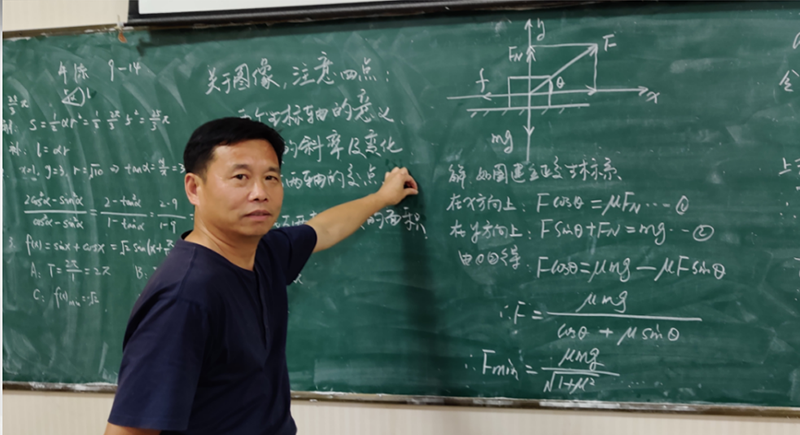 午练 9-14
S=½αr²=½·
l=αr
x=1, y=3, r=√10 ⇒ tanα=y/x=3
(2cos²α-sin²α)/(cos²α-sin²α) = (2-tan²α)/(1-tan²α) = (2-9)/(1-9) =
3. f(x)=sinx+cosx=√2sin(x+
A: T=2π/1=2π B:
C:
关于图像,注意四点:
坐标轴的意义
的斜率及变化
两轴的交点
的面积
y
F_N
F
f
θ
x
mg
解:如图建立正交坐标系
在x方向上:Fcosθ=μF_N…①
在y方向上:Fsinθ+F_N=mg…②
由①②得:Fcosθ=μmg-μFsinθ
∴F=μmg/(cosθ+μsinθ)
∴Fmin=μmg/√(1+μ²)